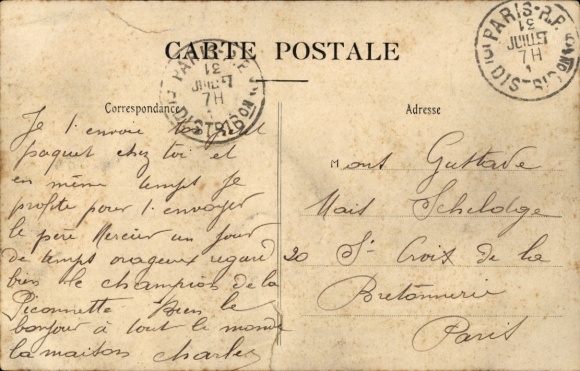 CARTE POSTALE
PARIS-R.P.
31
JUILLET
7H
DISTRIBUTION
PARIS-R.P.
31
JUILLET
7H
DISTRIBUTION
Correspondance
Je t'envoie ton petit
paquet chez toi et
en même temps je
profite pour t'envoyer
le père Mercier un jour
de temps orageux regarde
bien le champion de la
Piconnette Bien le
bonjour à tout le monde
la maison Charles
Adresse
Mons Gustave
Mais Scheldge
20 St Croix de la
Bretonnerie
Paris